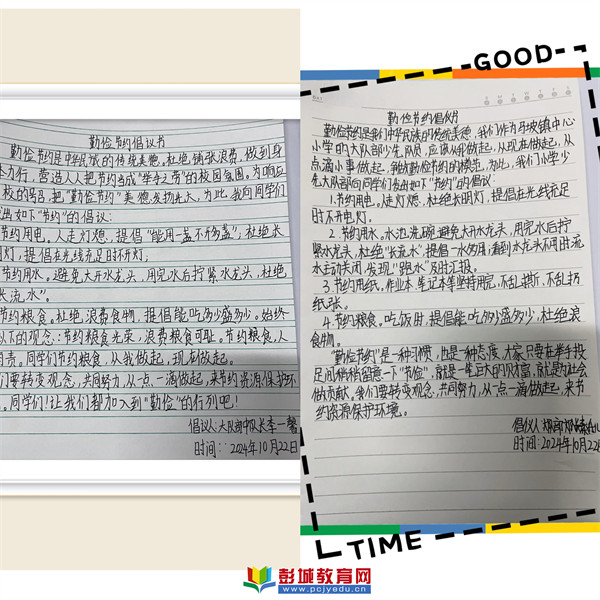 勤俭节约倡议书
勤俭节约是中华民族的传统美德。杜绝铺张浪费,做到身
力行,营造人人把节约当成"举手之劳"的校园氛围。为响应
校的号召,把"勤俭节约"美德发扬光大,为此,我向同学们
出如下"节约"的倡议:
节约用电。人走灯熄,提倡"能用一盏不用多盏";杜绝长
灯,提倡在光线充足时不开灯。
节约用水。避免大开水龙头,用完水后拧紧水龙头,杜绝
长流水"。
节约粮食。杜绝浪费食物,提倡能吃多少盛多少。始终
以下的观念:节约粮食光荣,浪费粮食可耻。节约粮食,人
有责。同学们节约粮食,从我做起,现在做起。
们要转变观念,共同努力,从一点一滴做起,来节约资源,保护环
。同学们!让我们都加入到"勤俭"的行列吧!
倡议人:大队部中队长李一馨
时间:2024年10月22日
GOOD
勤俭节约倡议书
勤俭节约是我们中华民族的传统美德。我们作为马坡镇中心
小学的大队部少先队员,应该从我做起,从现在做起,从
点滴小事做起,争做勤俭节约的模范。为此,我们小学少
先大队部向同学们发出如下"节约"的倡议:
1.节约用电。人走灯熄,杜绝长明灯,提倡在光线充足
时不开电灯。
2.节约用水。水边洗碗避免大开水龙头,用完水后拧
紧水龙头,杜绝"长流水"提倡一水多用,看到水龙头不用时流
水主动关闭,发现"跑水"及时汇报。
3.节约用纸。作业本笔记本等坚持用完,不乱撕,不乱扔
纸张。
4.节约粮食。吃饭时,提倡能吃多少盛多少,杜绝浪
食物。
"勤俭节约"是一种习惯,也是一种态度,大家只要在举手投
足间稍稍留意一下"节俭",就是一笔巨大的财富,就是为社会
做贡献。我们要转变观念,共同努力,从一点一滴做起,来节
约资源保护环境。
倡议人:大队部
时间:2024年10月22日
TIME
彭城教育网
www.pcjyedu.cn